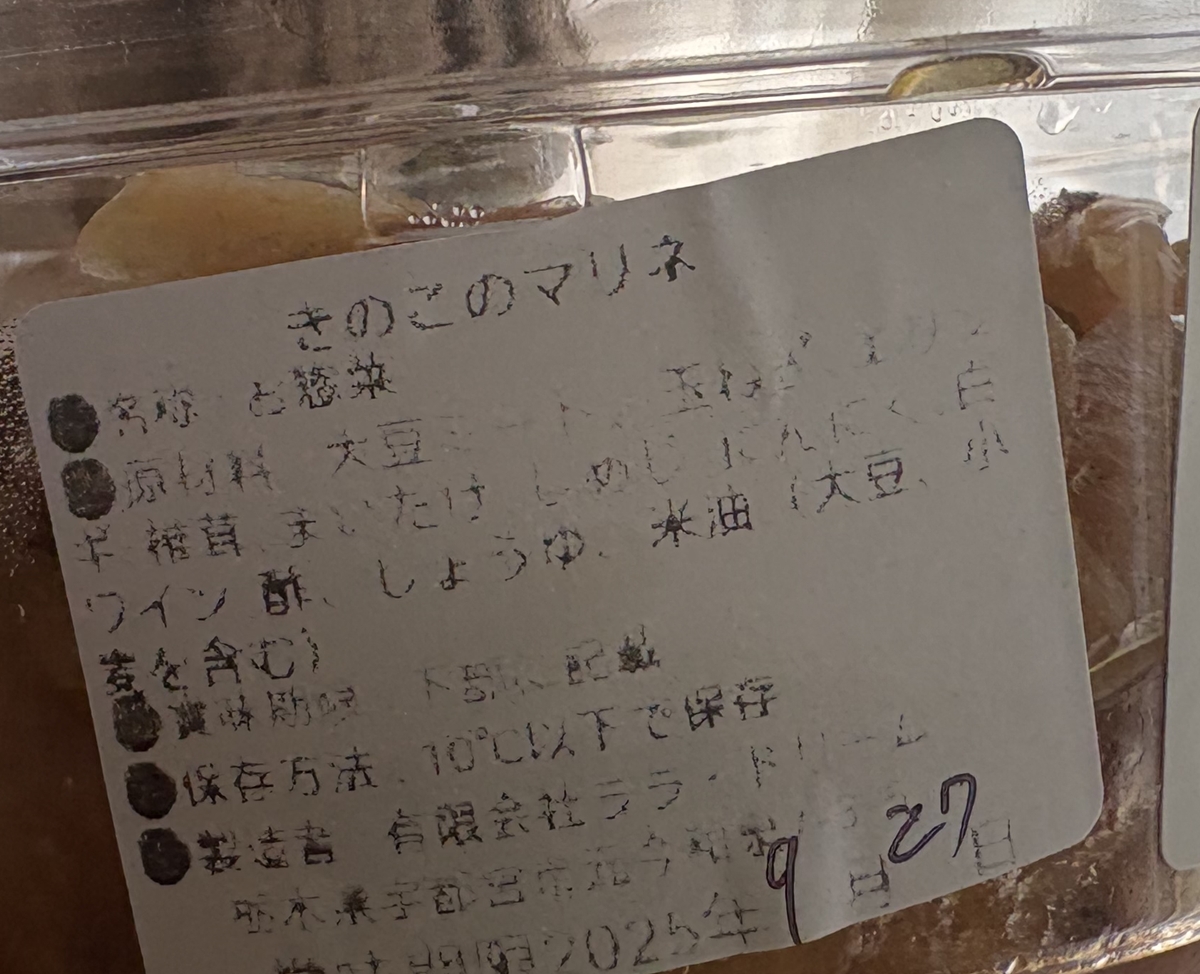 きのこのマリネ
●名称 お惣菜
●原材料 大豆ミート、玉ねぎ、エリンギ
椎茸 まいたけ しめじ にんにく、白
ワイン酢、しょうゆ、米油（大豆、小
麦を含む）
●賞味期限 下部に記載
●保存方法 10℃以下で保存
●製造者 有限会社ララ・ドリーム
栃木県宇都宮市
賞味期限2025年9月27日